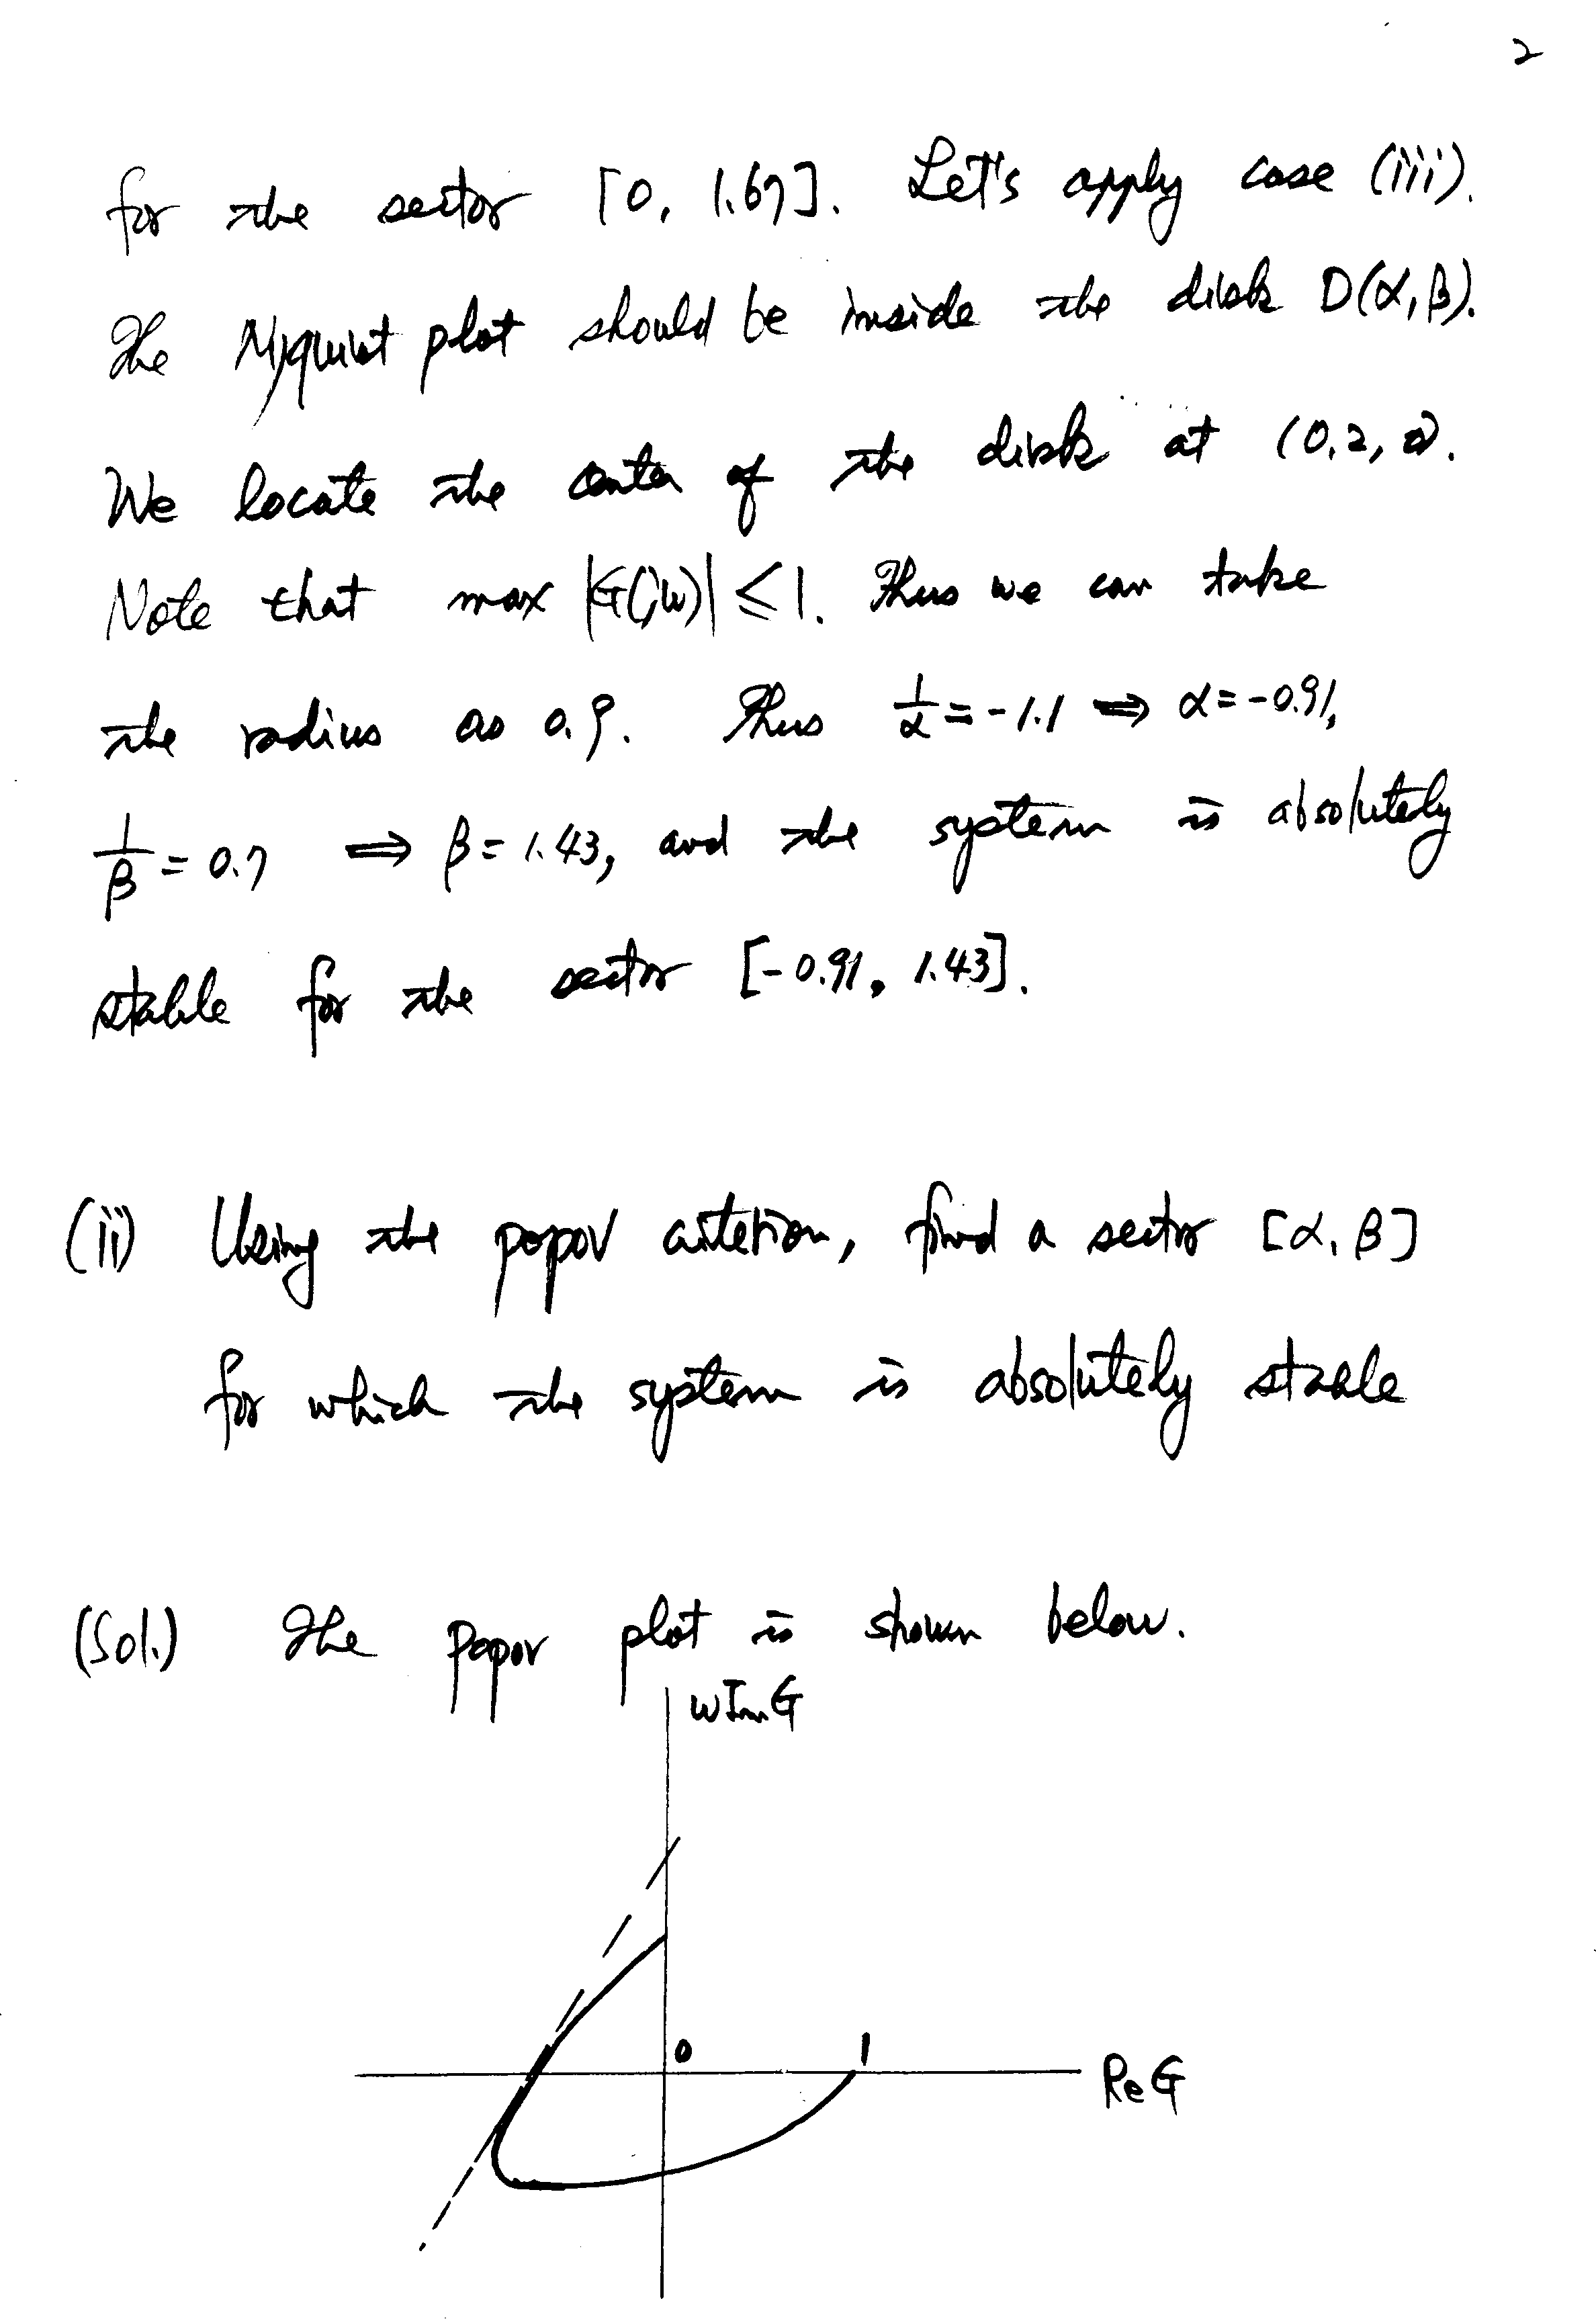 2
for the sector [0, 1.67]. Let's apply case (iii).
The Nyquist plot should be inside the disk D(α, β).
We locate the center of the disk at (0.2, 0).
Note that max |G(jw)| ≤ 1. Thus we can take
the radius as 0.9. Thus 1/α = -1.1 ⇒ α = -0.91,
1/β = 0.7 ⇒ β = 1.43, and the system is absolutely
stable for the sector [-0.91, 1.43].
(ii) Using the popov criterion, find a sector [α, β]
for which the system is absolutely stable
(Sol.) The Popov plot is shown below.
wImG
0
1
ReG